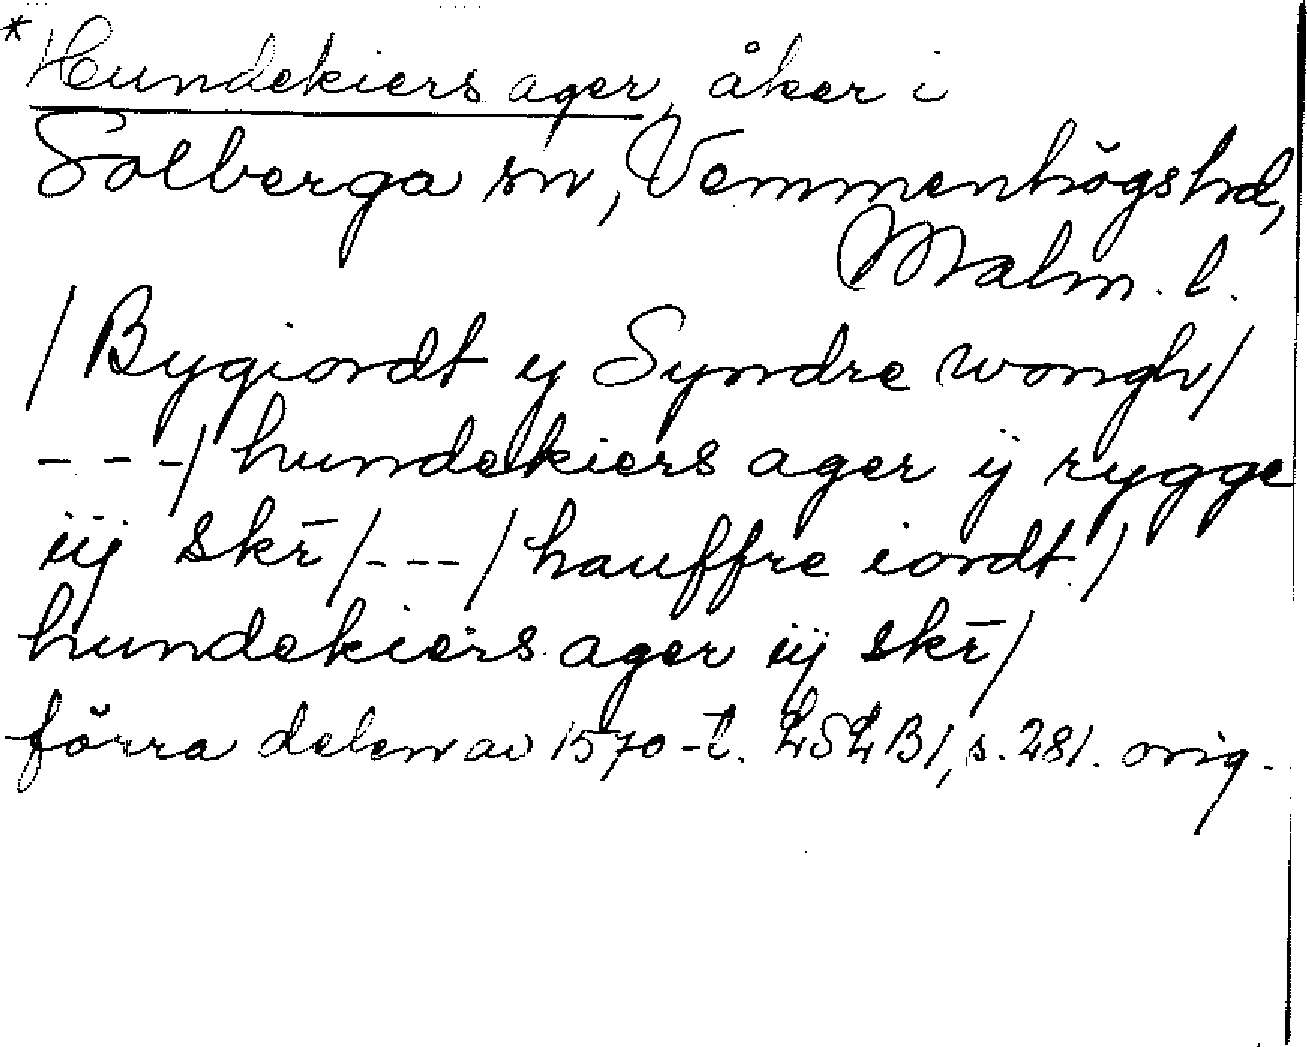 * Hundekiers ager, åker i
Solberga sn, Vemmenhögs hd,
Malm. l.
/ Bygiordt ij Syndre wongh /
- - - / hundekiers ager ij rygge
iij skr̄ / - - - / hauffre iordt /
hundekiers ager iij skr̄ /
förra delen av 1570-t. LSLB1, s. 281. orig.